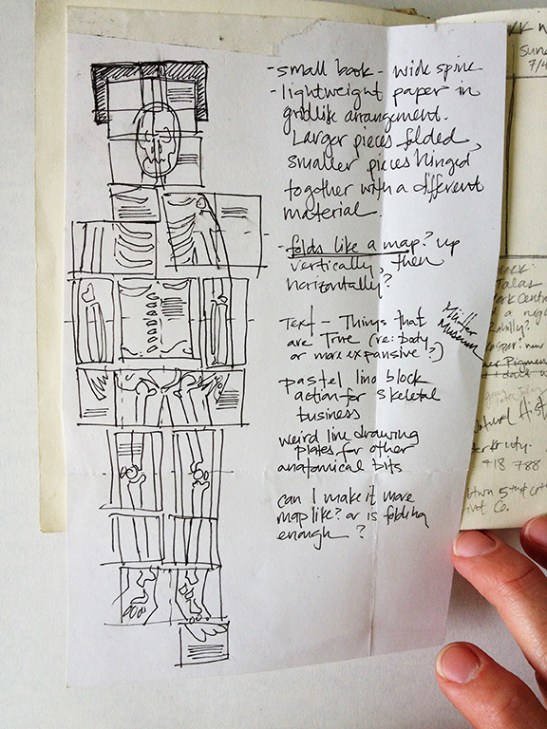 - small book - wide spine
- lightweight paper in
gridlik arrangement.
Larger pieces folded,
smaller pieces hinged
together with a different
material.
- folds like a map? up
vertically, then
horizontally?
Text - Things that
are True (re: body,
or more expansive?)
Mütter
Museum
pastel lino block
action for skeletal
business
weird line drawing
plates for other
anatomical bits
can I make it more
map like? or is folding
enough?
Sun
7/4
Talas
a nig
418 788
Co.